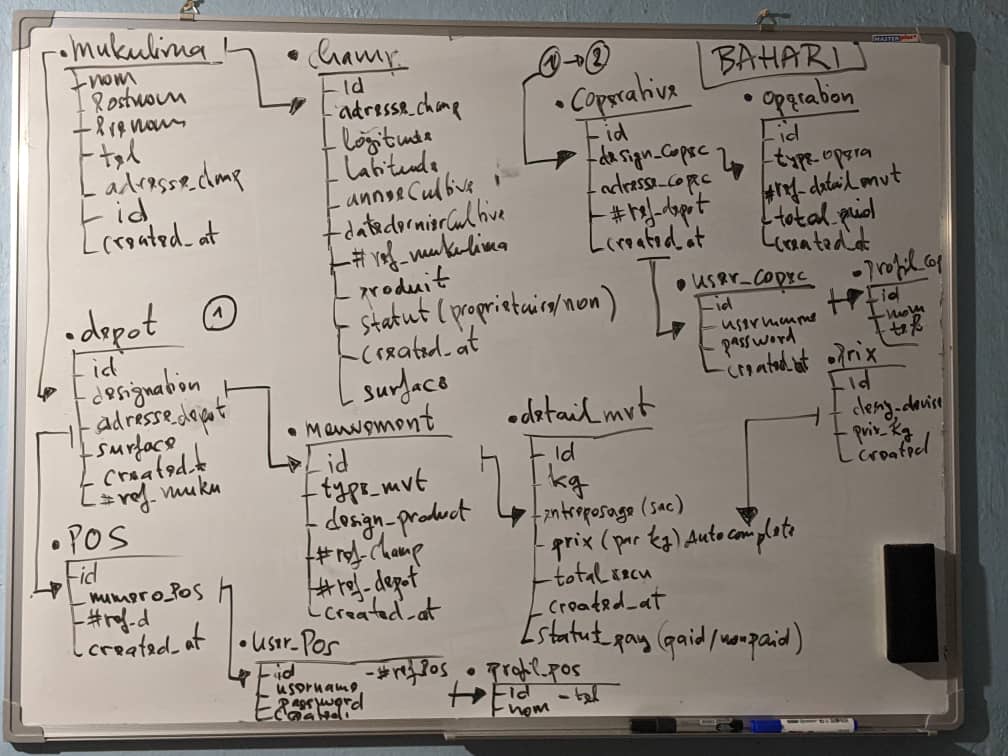 • mukulima
nom
Postnom
Prenom
tel
adresse_chmp
id
created_at
• Champ
id
adresse_chmp
logitude
latitude
annee Cultive
date dernier Cultive
# ref_mukulima
produit
statut (proprietaire/non)
created_at
surface
① → ②
BAHARI
MASTER
• Coperative
id
design_copec
adresse_copec
# ref_depot
created_at
• Operation
id
type_opera
# ref_detail_mvt
total_paid
created_at
• user_copec
id
username
password
created_at
• Profil_cop
id
nom
tel
• Prix
id
desig_devise
prix_kg
created
• depot
①
id
designation
adresse_depot
surface
created_t
# ref_muku
• Mouvement
id
type_mvt
design_product
# ref_champ
# ref_depot
created_at
• detail_mvt
id
kg
entreposage (sac)
prix (par kg) Autocomplete
total recu
created_at
statut_pay (paid/nonpaid)
• POS
id
numero_POS
# ref_d
created_at
• user_Pos
id - # ref Pos
username
password
created
• profil_pos
id - tel
nom